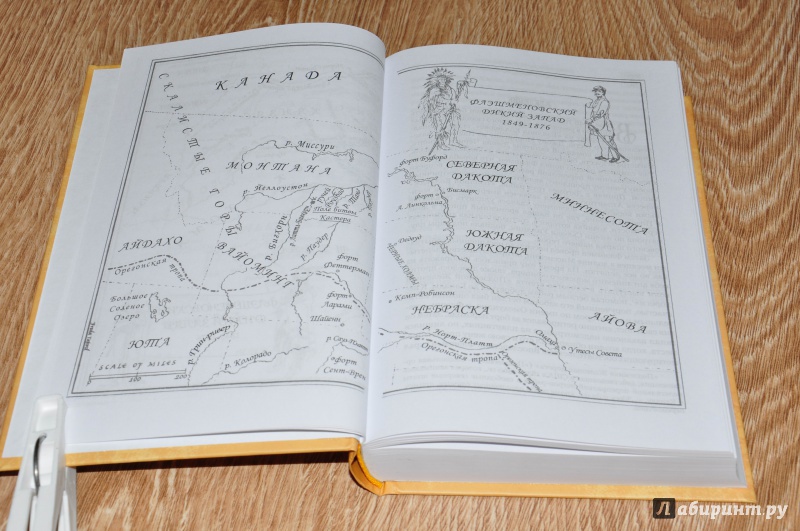 КАНАДА
СКАЛИСТЫЕ ГОРЫ
р. Миссури
МОНТАНА
р. Йеллоустон
р. Бигхорн
Поле битвы
Кастера
р. Паудер
АЙДАХО
ВАЙОМИНГ
Орегонская тропа
форт
Феттерман
Большое
Соленое
Озеро
форт
Ларами
Шайенн
ЮТА
р. Гринривер
р. Колорадо
форт
Сент-Врен
SCALE OF MILES
100
200
ФЛЭШМЕНОВСКИЙ
ДИКИЙ ЗАПАД
1849-1876
форт Буфорд
СЕВЕРНАЯ
ДАКОТА
форт
А. Линкольна
Бисмарк
МИННЕСОТА
Дедвуд
ЮЖНАЯ
ДАКОТА
Кемп-Робинсон
НЕБРАСКА
АЙОВА
р. Норт-Платт
Омаха
Утесы Совета
Орегонская тропа
Лабиринт.ру